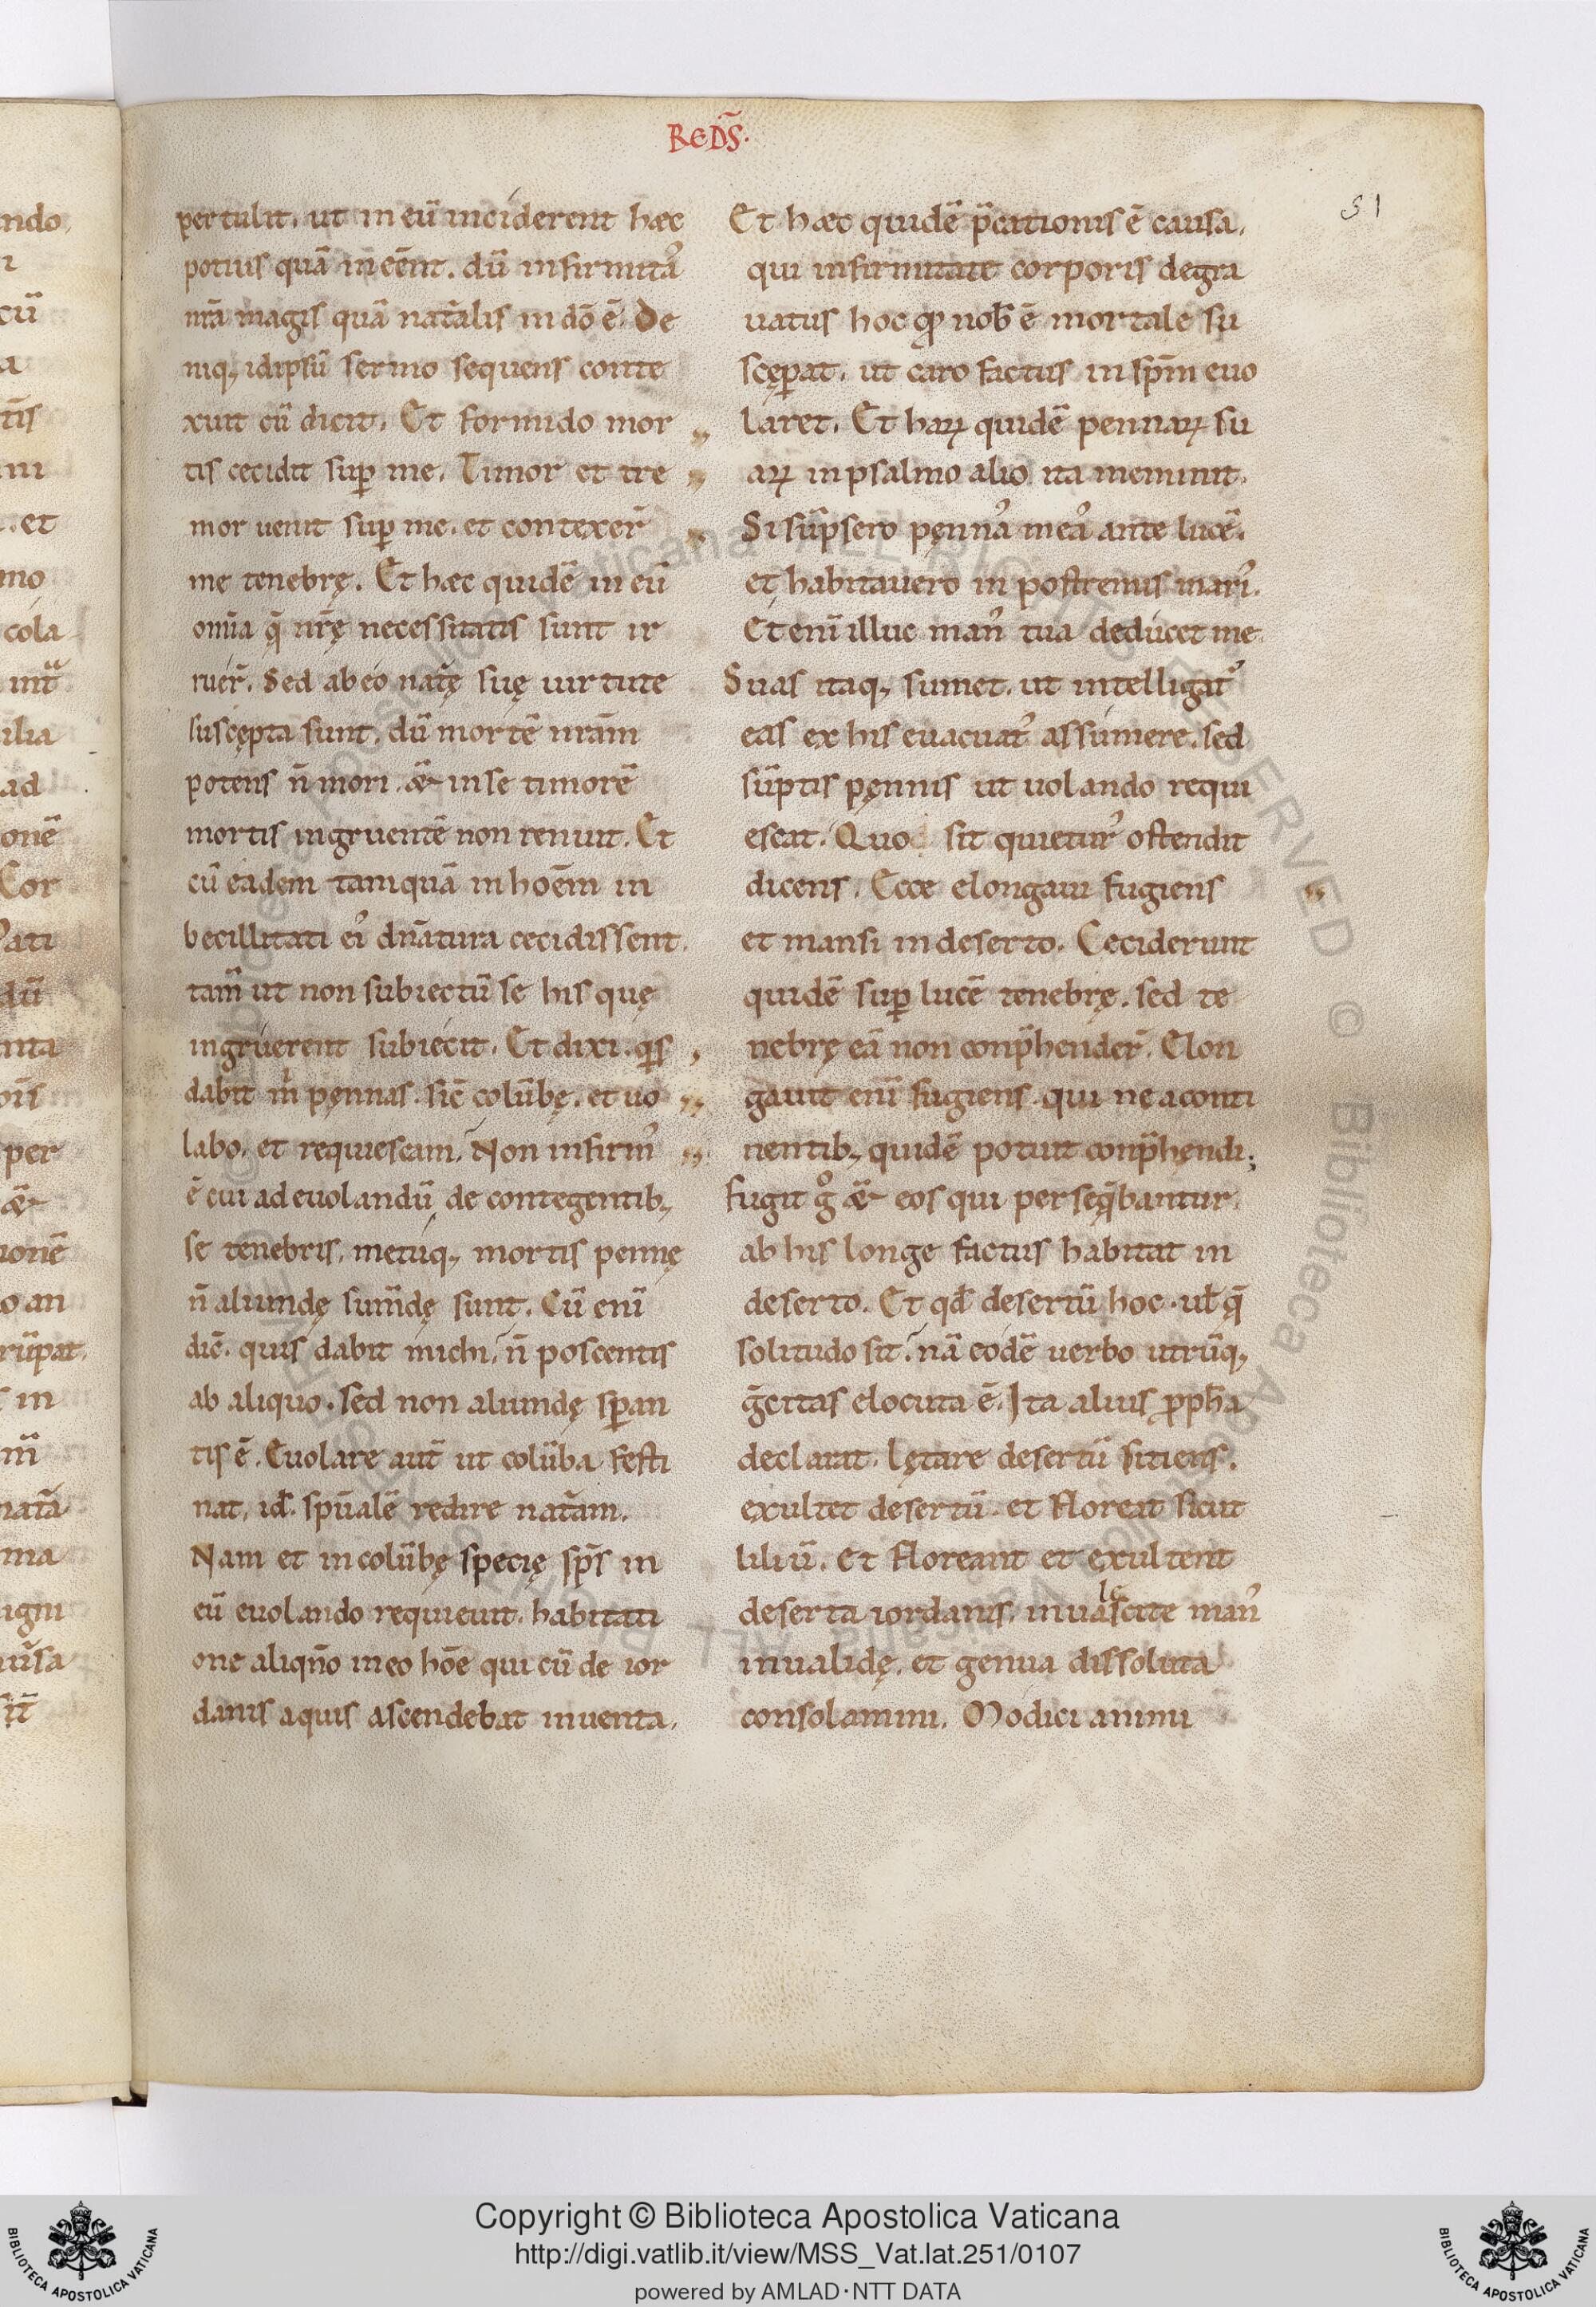 REDS̃.
51
pertulit. ut in eū inciderent hæc
potius quā inēēnt. dū infirmitaꝰ
nr̄a magis quā nat̄alis in dō ē. De
niq; idipsū sermo sequens conte
xuit cū dicit. Et formido mor
tis cecidit suꝑ me. Timor et tre
mor uenit suꝑ me. et contexer̄
me tenebrę. Et hæc quidē in eū
om̄ia q̄ nr̄ę necessitatis sunt ir
ruer̄. Sed ab eo nat̄ę suę uirtute
suscępta sunt. dū mortē nrām
potens n̄ mori. &̄ in se timorē
mortis ingruentē non renuit. Et
cū eadem tamquā in hoēm in
becillitati eiꝰ dn̄atura cecidissent.
tam̄ ut non subiectū se his quę
ingruerent subiecit. Et dixi. qͥs
dabit m̍ pęnnas. sic̄ colūbę. et uo
labo. et requiescam. Non infirmꝰ
ē cui ad euolandū de contegentib;
se tenebris. metuq; mortis pennę
n̄ aliundę sum̄dę sunt. Cū enī
dic̄. quis dabit michi. n̄ poscentis
ab aliquo. sed non aliundę sꝑan
tis ē. Euolare aut̄ ut colūba festi
nat, id̄. spūalē redire nat̄am.
Nam et in colūbę specię sp̄s in
eū euolando requieuit. habitati
one aliqn̄o in eo hōe qui cū de ior
danis aquis ascendebat inuenta.
Et hæc quidē p̄cationis ē causa.
qui infirmitate corporis degra
uatus hoc ꝙ nob̄ ē mortale su
scęꝑat. ut caro factus in spm̄ euo
laret. Et haꝝ quidē pennaꝝ su
aꝝ in psalmo alio ita meminit.
Si sūpsero pęnnaꝰ meaꝰ ante lucē.
et habitauero in postremis mariꝰ.
Et enī illuc manꝰ tua deducet me
Suas itaq; sumet. ut intelligat᷒
eas ex his euacuat᷒ assumere. sed
sūptis pęnnis ut uolando requi
escat. Quo sit quietur᷒ ostendit
dicens. Ecce elongaui fugiens
et mansi in deserto. Ceciderunt
quidē suꝑ lucē tenebrę. sed te
nebrę eā non conp̄hender̄. Elon
gauit enī fugiens. qui ne a conti
nentib; quidē potuit conp̄hęndi;
Fugit gͦ &̄ eos qui perseq̄bantur.
ab his longe factus habitat in
deserto. Et qd̄ desertū hoc. ul̄ q̄
solitudo sit. nā eodē uerbo utrūq;
ḡcitas elocuta ē. Ita alius ꝓph̄a
declarat. lętare desertū sitiens.
exultet desertū. et floreat sicut
liliū. Et floreant et exultent
deserta iordanis. inualescite manꝰ
inualidę. et genua dissoluta
consolamini. Modici animi
Copyright © Biblioteca Apostolica Vaticana
http://digi.vatlib.it/view/MSS_Vat.lat.251/0107
powered by AMLAD·NTT DATA